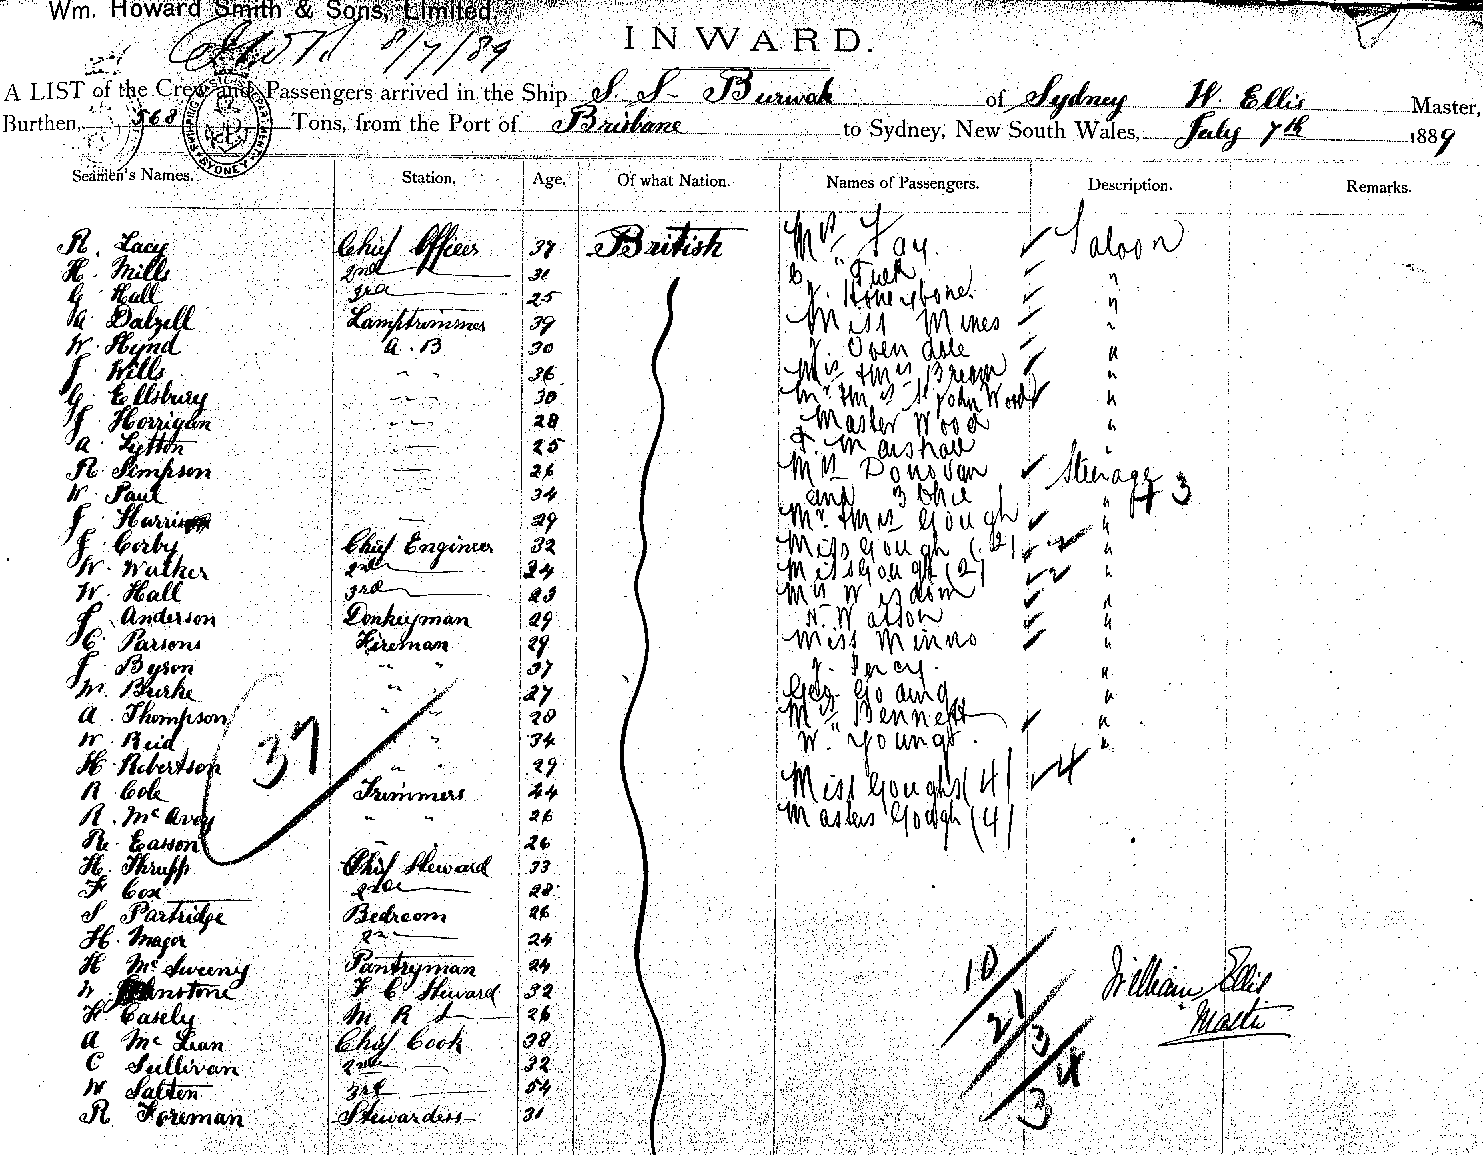 Wm. Howard Smith & Sons, Limited.
8/7/89
INWARD.
A LIST of the Crew and Passengers arrived in the Ship S. S. Burwah of Sydney W. Ellis Master,
Burthen, 568 Tons, from the Port of Brisbane to Sydney, New South Wales, July 7th 1889
Seamen's Names. Station. Age. Of what Nation. Names of Passengers. Description. Remarks.
R. Lacy Chief Officer 37 British Mrs Fay Saloon
H. Mills 2nd 31 " Tuck "
G. Hall 3rd 25 J. Honeybone "
A Dalzell Lamptrimmer 39 Miss Mines "
W. Hynd A.B 30 J. Ovendale "
J. Wills " " 36 Mr & Mrs "
G. Ellsbury " " 30 Mr & Mrs St John Wood "
J Horrigan " " 28 Master Wood "
A. Lytton 25 F. Marshall "
R Simpson 26 Mrs Donovan Steerage
W. Paul 34 and 3 Chil " + 3
J Harrison 29 Mr & Mrs Gough "
J Corby Chief Engineer 32 Miss Gough (2) 2 "
W. Walker 2nd 24 Miss Gough (2) 2 "
W. Hall 3rd 23 Mrs Wisdom "
J Anderson Donkeyman 29 H. Watson "
C. Parsons Fireman 29 Miss Minno "
J Byson " " 37 J. Percy. "
M. Burke " " 27 Geo. Goaing "
A. Thompson " " 28 Mrs Bennett "
W. Reid " " 34 W. Youngs. "
H. Robertson " " 29
37
R Cole Trimmers 24 Miss Goughs (4) 4
R. McAvoy " " 26 Masters Gough (4)
R. Easson " " 26
H. Thrupp Chief Steward 33
F Cox 2nd 28
S Partridge Bedroom 26
H. Major 2nd 24
H McSweeny Pantryman 24 10
W Johnstone F C Steward 32 William Ellis
H Casely M R S 26 21 Master
A McLean Chief Cook 38 3
C Sullivan 2nd 32 4
W Salten 3rd 54
R Foreman Stewardess 31 3